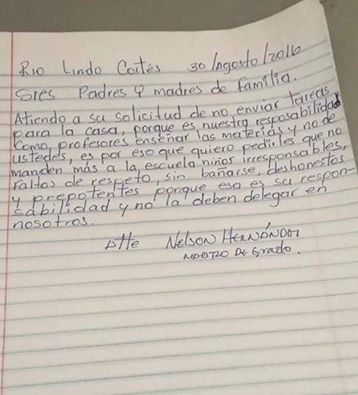 Rio Lindo Cortés 30/Agosto/2016
Sres Padres y madres de familia.
Atiendo a su solicitud de no enviar tareas
para la casa, porque es nuestra resposabilidad
como profesores enseñar las materias y no de
ustedes, es por eso que quiero pedirles que no
manden más a la escuela niños irresponsables,
faltos de respeto, sin bañarse, deshonestos
y prepotentes porque esa es su respon-
sabilidad y no la deben delegar en
nosotros.
Atte Nelson Hernández
Maestro de Grado.